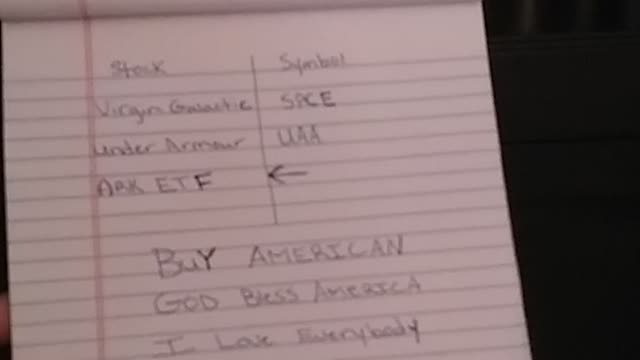 Stock Symbol
Virgin Galactic SPCE
Under Armour UAA
ARK ETF ←
BUY AMERICAN
GOD BLESS AMERICA
I Love Everybody